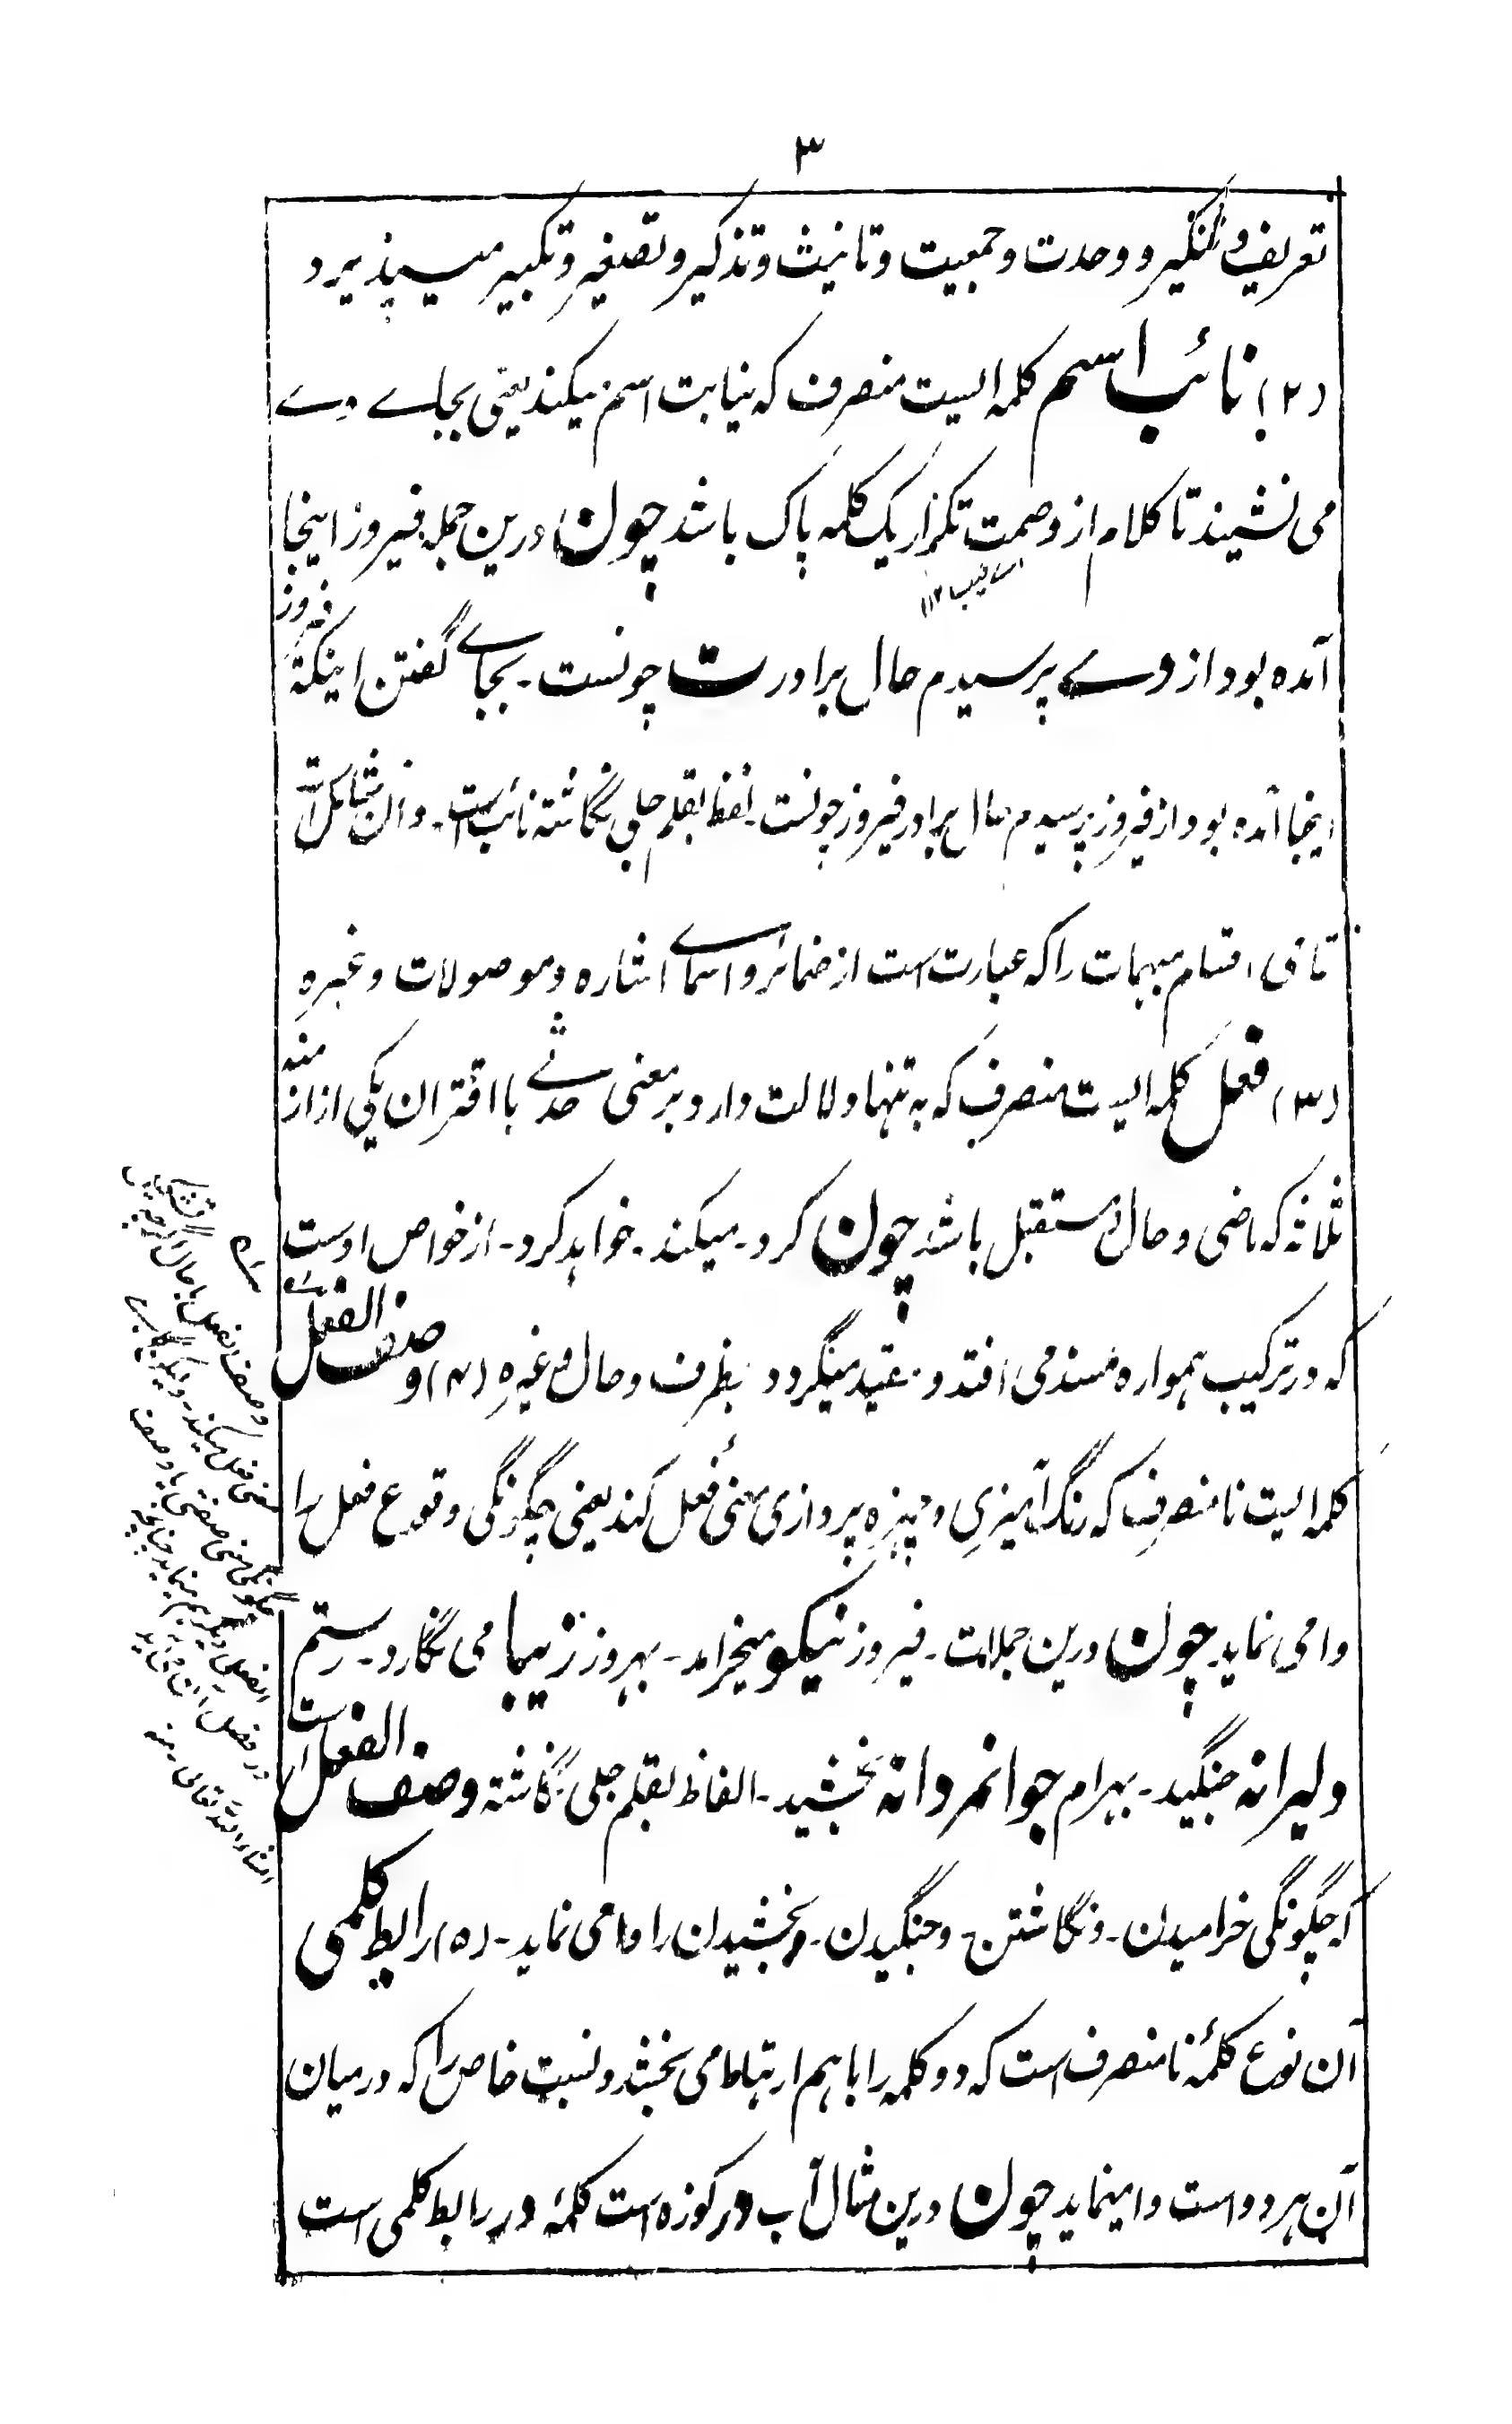 ۳
تعریف و تنکیر و وحدت و جمعیت و تانیث و تذکیر و تصغیر و تکبیر میپذیرد
(۲) نائب اسم کلمه ایست منصرف که نیابت اسم میکند یعنی بجاے وے
می نشیند تا کلام از وصمت تکرار یک کلمه پاک باشد چون درین جمله فیروز اینجا
اے عیب ۱۲
آمده بود از وے پرسیدم حال برادرت چونست ـ بجاے گفتن اینکه فیروز
اینجا آمده بود از فیروز پرسیدم حال برادر فیروز چونست ـ لفظ بقلم جلی نگاشته نائب است ـ و آن شامل است
تمامی اقسام مبهمات را که عبارت است از ضمائر و اسماے اشاره و موصولات و غیره
(۳) فعل کلمه ایست منصرف که به تنها دلالت دارد بر معنی حدثے با اقتران یکی از ازمنه
ثلاثه که ماضی و حال و مستقبل باشد چون کرد ـ میکند ـ خواهد کرد ـ از خواص اوست
که در ترکیب همواره مسند می افتد و مقید میگردد بظرف و حال و غیره (۴) وصف الفعل
کلمه ایست نا منصرف که رنگ آمیزی و چهره پردازی معنی فعل کند یعنی چگونگی وقوع فعل را
وا می نماید چون درین جملات ـ فیروز نیکو میخرامد ـ بهروز زیبا می نگارد ـ رستم
دلیرانه جنگید ـ بهرام جوانمردانه بخشید ـ الفاظ بقلم جلی نگاشته وصف الفعل است
که چگونگی خرامیدن ـ و نگاشتن ـ و جنگیدن ـ و بخشیدن را وا می نماید ـ (۵) رابط کلمی
آن نوع کلمهٔ نا منصرف است که دو کلمه را باهم ارتباط می بخشد و نسبت خاص را که درمیان
آن هر دو است وا مینماید چون درین مثال آب در کوزه است کلمهٔ در رابط کلمی است
وصف الفعل
معنی فعل میکند ـ و
چگونگی معنی صفتی یا وصف
الفعل دیگر هم مینماید چنانچه
در فصل
انشاء الله تعالی ـ منه